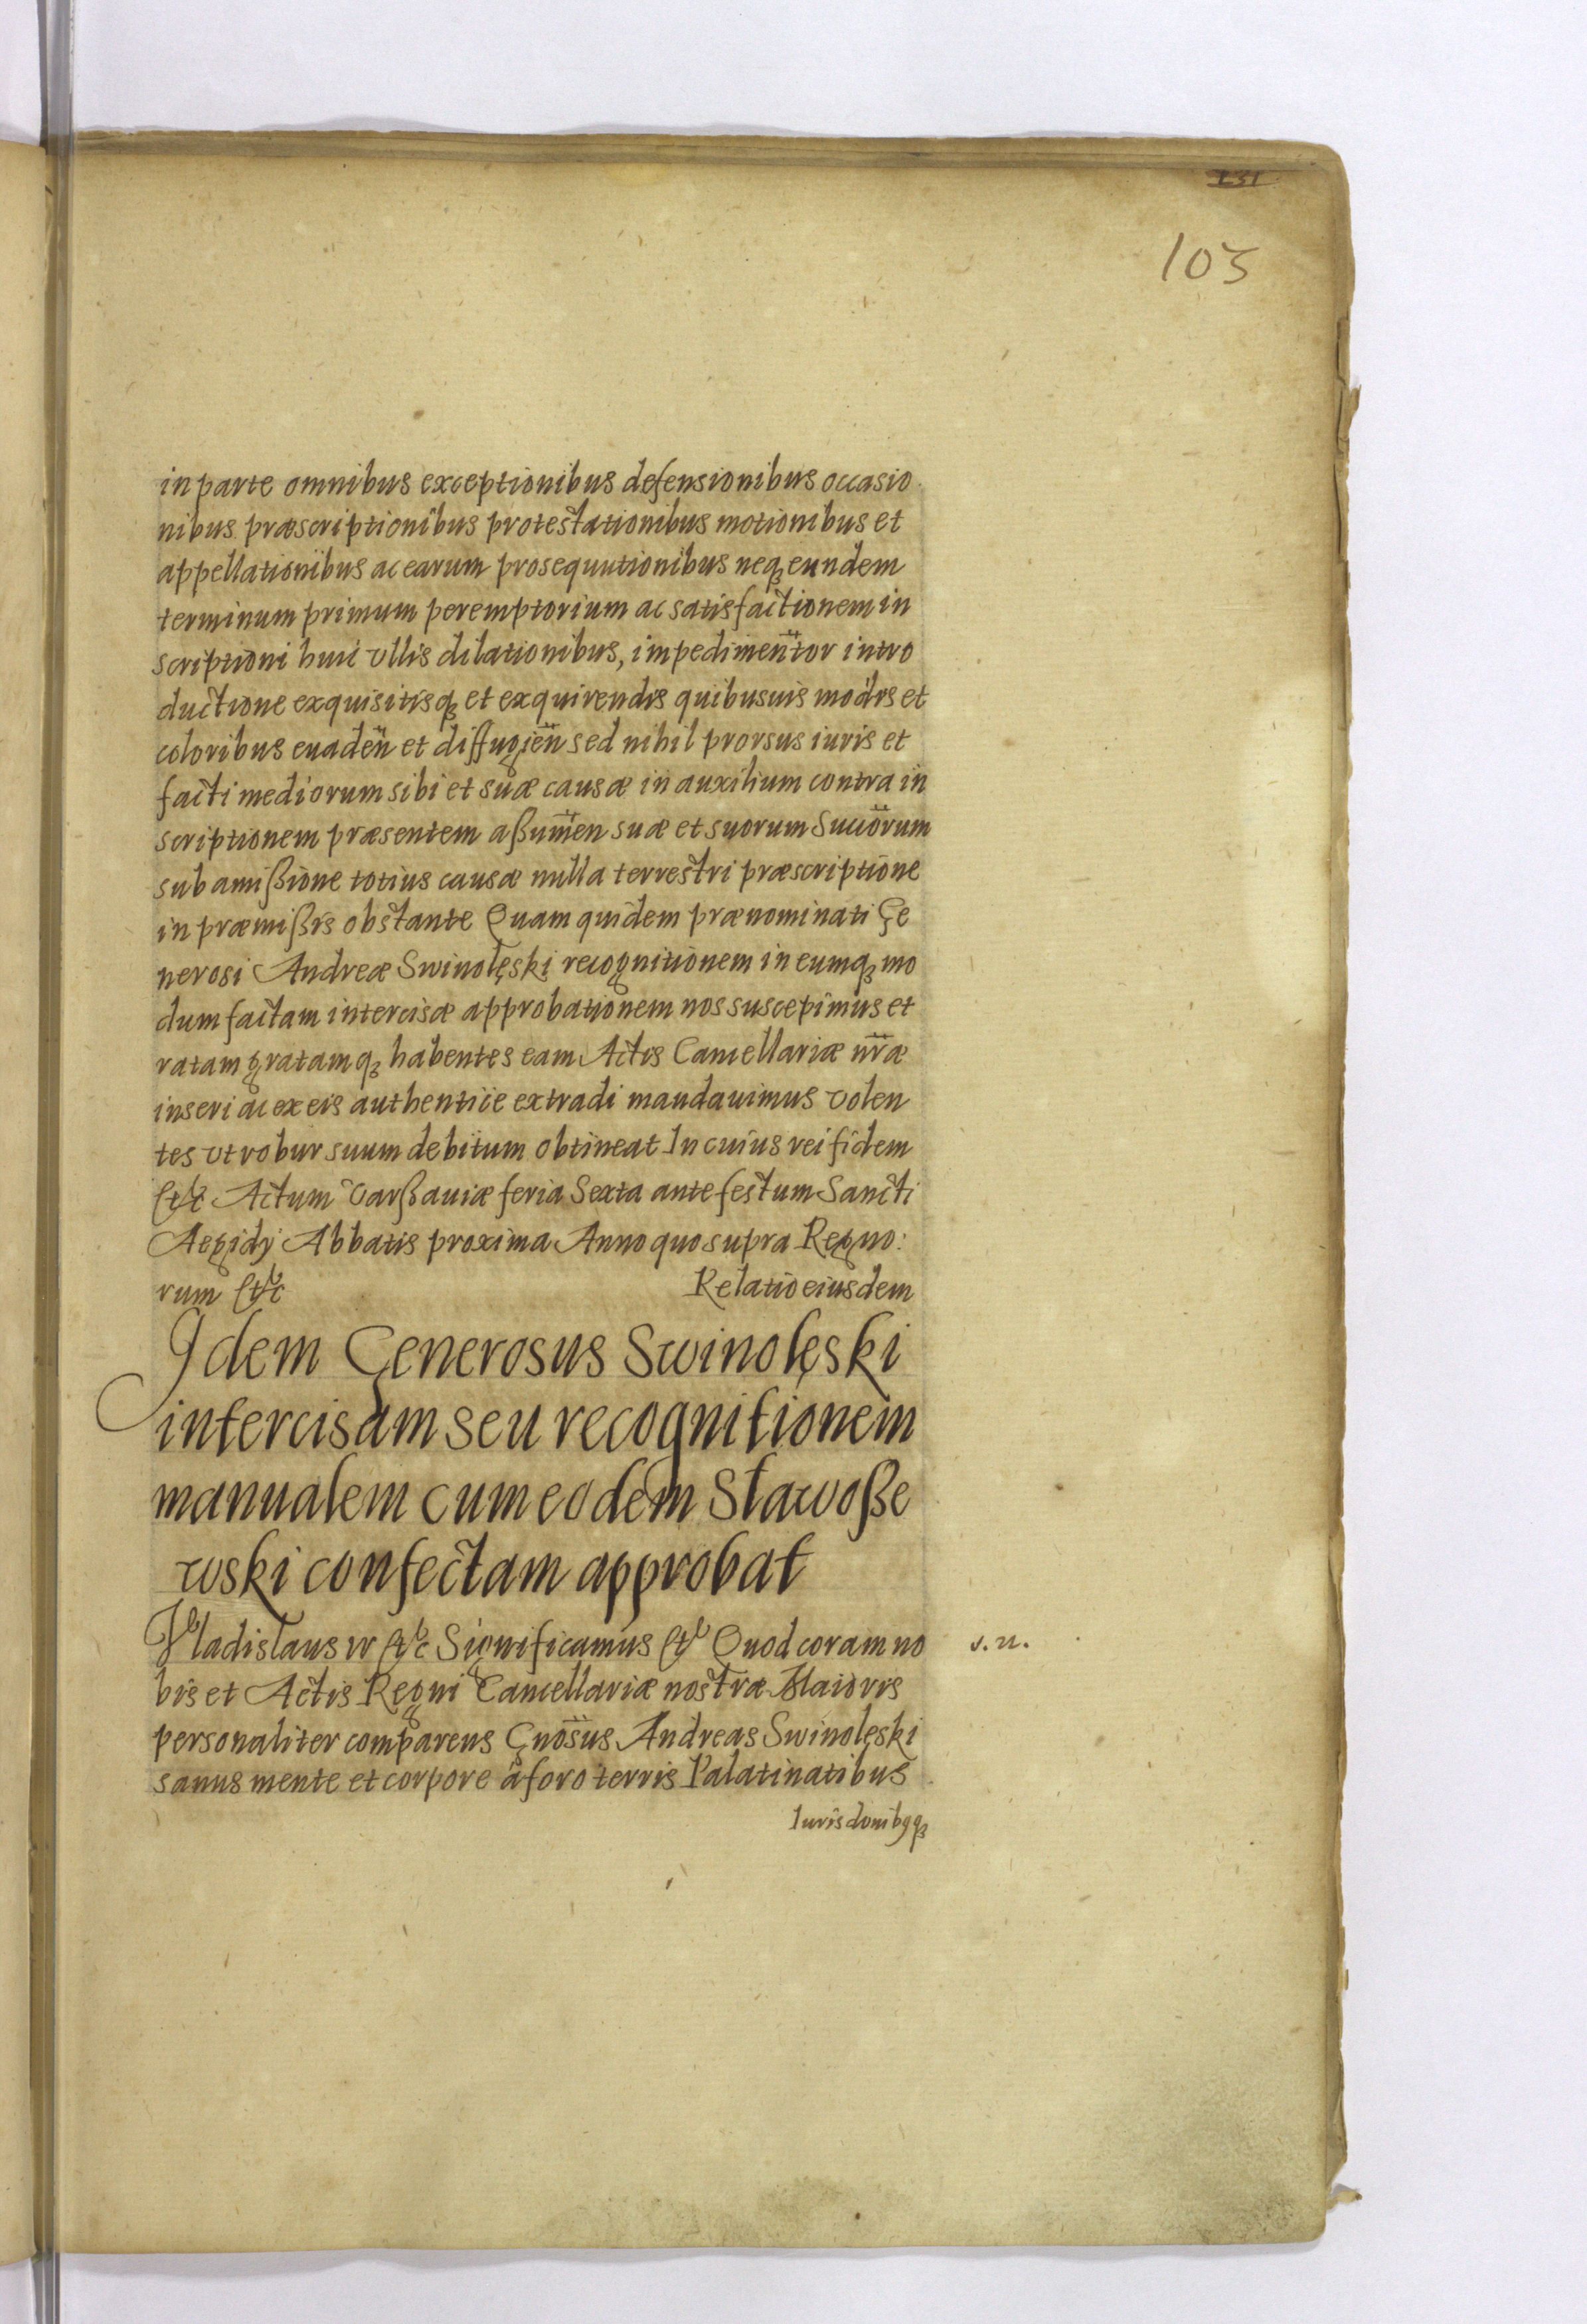 131
103
in parte omnibus exceptionibus defensionibus occasio
nibus præscriptionibus protestationibus motionibus et
appellationibus ac earum prosequutionibus neqꝫ eundem
terminum primum peremptorium ac satisfactionem in
scriptioni huic vllis dilationibus, impedimen̈tor intro
ductione exquisitisqꝫ et exquirendis quibusuis modis et
coloribus euaden̈ et diffugien̈ sed nihil prorsus iuris et
facti mediorum sibi et suæ causæ in auxilium contra in
scriptionem præsentem aßum̈en suæ et suorum Succ̈orum
sub amißione totius causæ nulla terrestri præscriptione
in præmißis obstante Quam quidem prænominati Ge
nerosi Andreæ Swinolęski recognitionem in eumqꝫ mo
dum factam intercisæ approbationem nos suscepimus et
ratam gratamqꝫ habentes eam Actis Cancellariæ nr̈æ
inseri ac ex eis authentice extradi mandauimus volen
tes vt robur suum debitum obtineat In cuius rei fidem
Etc Actum Varßauiæ feria Sexta ante festum Sancti
Aegidÿ Abbatis proxima Anno quo supra Regno:
rum Etc Relatio eiusdem
Idem Generosus Swinolęski
intercisam seu recognitionem
manualem cum eodem Stawoße
wski confectam approbat
Vladislaus IV Etc Significamus Etc Quod coram no
v. n.
bis et Actis Regni Cancellariæ nostræ Maioris
personaliter comparens Gnösus Andreas Swinolęski
sanus mente et corpore â foro terris Palatinatibus
Iurisdonibꝰqꝫ